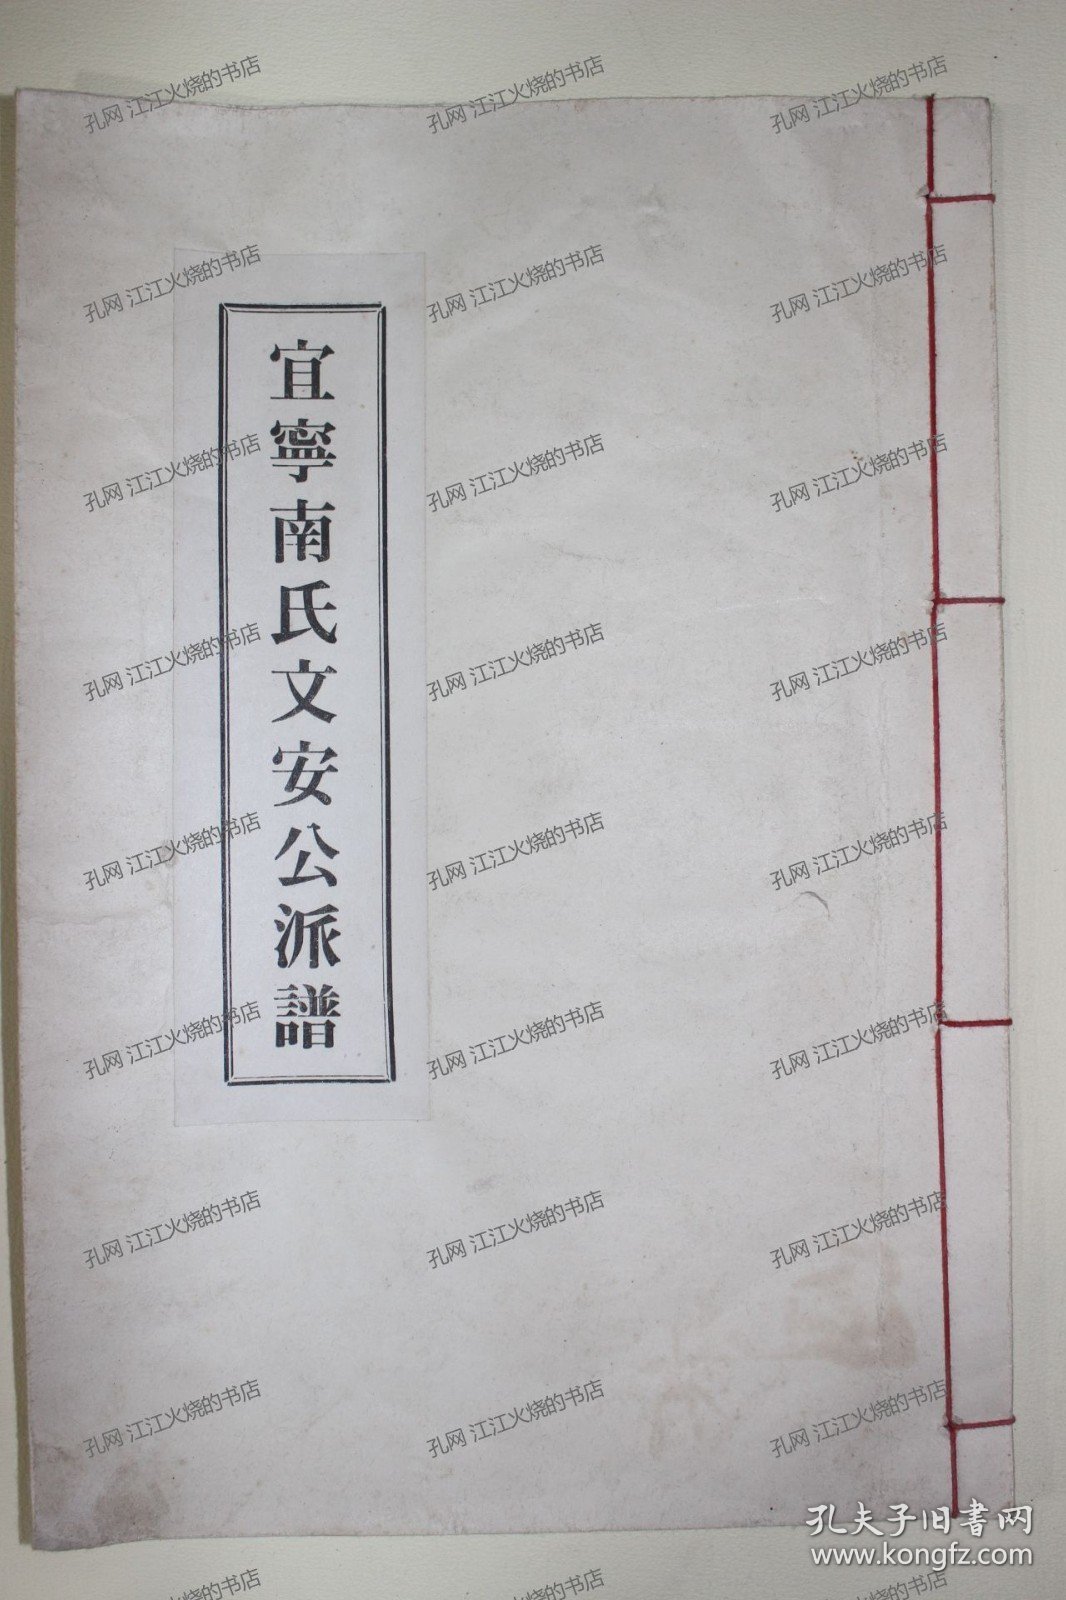 宜寧南氏文安公派譜
孔网 江江火烧的书店 孔网 江江火烧的书店 孔网 江江火烧的书店
孔网 江江火烧的书店 孔网 江江火烧的书店 孔网 江江火烧的书店
孔网 江江火烧的书店 孔网 江江火烧的书店 孔网 江江火烧的书店
孔网 江江火烧的书店 孔网 江江火烧的书店 孔网 江江火烧的书店
孔网 江江火烧的书店 孔网 江江火烧的书店 孔网 江江火烧的书店
孔网 江江火烧的书店 孔网 江江火烧的书店 孔网 江江火烧的书店
孔网 江江火烧的书店 孔网 江江火烧的书店 孔网 江江火烧的书店
孔网 江江火烧的书店 孔网 江江火烧的书店 孔网 江江火烧的书店
孔夫子旧書网
www.kongfz.com
江江火烧的书店 江江火烧的书店 江江火烧的书店